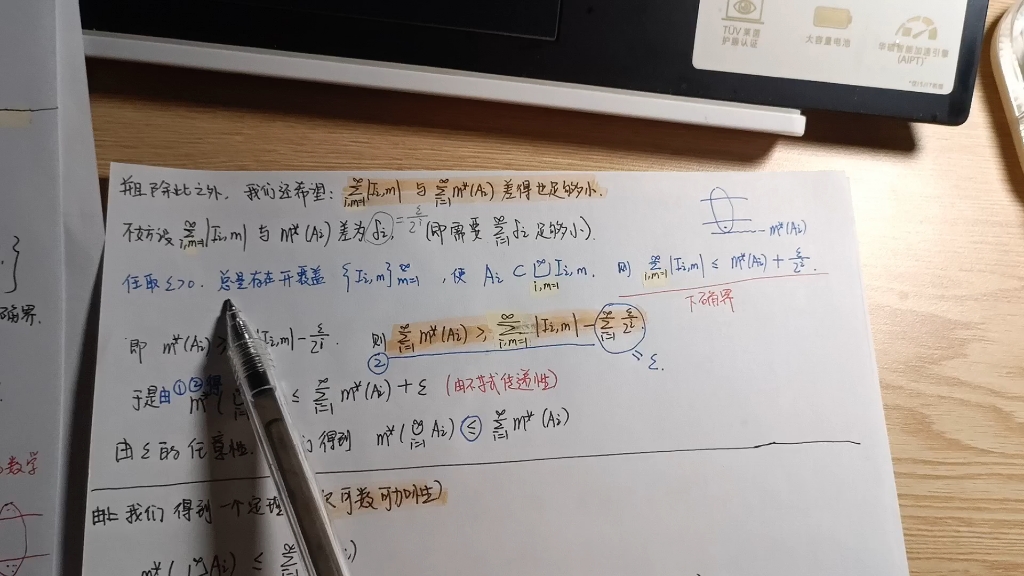 TÜV莱茵
护眼认证
大容量电池
华硕智能加速引擎
(AIPT)
除此之外, 我们还希望: ∑_{i,m=1}^∞ |I_{i,m}| 与 ∑_{i=1}^∞ m*(A_i) 差得也足够小.
不妨设 ∑_{i,m=1}^∞ |I_{i,m}| 与 m*(A_i) 差为 δ_i = ε/2^i, (即需要 ∑_{i=1}^∞ δ_i 足够小).
m*(A_i)
任取 ε>0. 总是存在开覆盖 {I_{i,m}}_{m=1}^∞, 使 A_i ⊂ ⋃_{i,m=1}^∞ I_{i,m}. 则 ∑_{i,m=1}^∞ |I_{i,m}| ≤ m*(A_i) + ε/2^i.
下确界
即 m*(A_i) ≥ |I_{i,m}| - ε/2^i. 则 ∑_{i=1}^∞ m*(A_i) ≥ ∑_{i,m=1}^∞ |I_{i,m}| - ∑_{i=1}^∞ ε/2^i.
② = ε.
于是由①②得 m*( ≤ ∑_{i=1}^∞ m*(A_i) + ε (由不等式传递性)
由 ε 的任意性. 得到 m*(⋃_{i=1}^∞ A_i) ≤ ∑_{i=1}^∞ m*(A_i)
由上我们得到一个定理 可数可加性)
m*(⋃A_i) ≤ ∑
确界.
数学